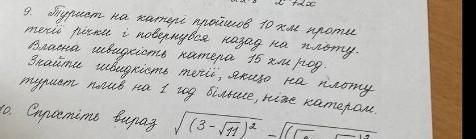 9. Турист на катері пройшов 10 км проти
течії річки і повернувся назад на плоту.
Власна швидкість катера 15 км/год.
Знайти швидкість течії, якщо на плоту
турист плив на 1 год більше, ніж катером.
10. Спростіть вираз √(3-√11)² - √((